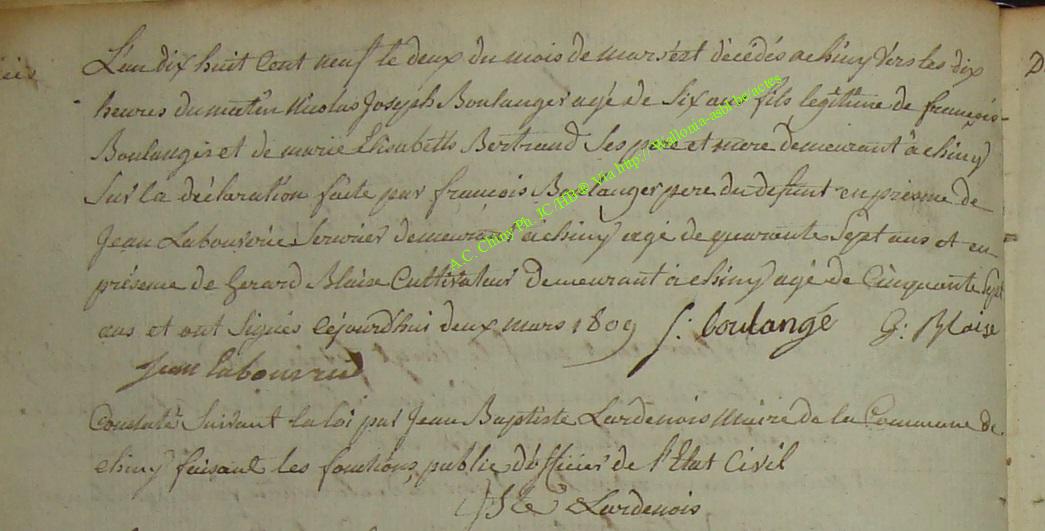 L'an dix huit Cent neuf le deux du mois de mars est décédés a chiny vers les dix
heures du matin Nicolas Joseph Boulanger agé de Six ans fils legitime de françois
Boulanger et de marie Elisabeth Bertrand Ses pere et mere demeurant à chiny
Sur la déclaration faite par françois Boulanger pere du defunt en présence de
Jean Labourrie Serurier demeurant à chiny agé de quarante Sept ans et en
présence de Gerard Blaise Cultivateur demeurant à chiny agé de Cinquante Sept
ans et ont Signés cejourd'hui deux mars 1809 f: boulangé G: Blaise
Jean labourrie
Constaté Suivant la loi par Jean Baptiste Lardenois Maire de la Commune de
chiny faisant les fonctions public d'officier de l'Etat Civil
Lardenois
D
A.C. Chiny Ph. JC /HB® Via http://wallonia-asbl.be/actes